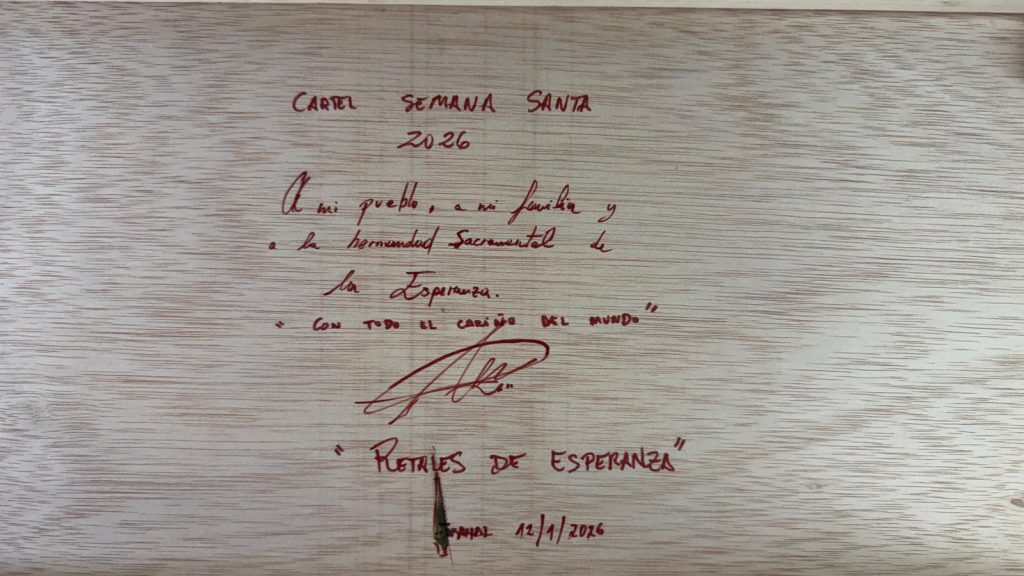 CARTEL SEMANA SANTA
2026
A mi pueblo, a mi familia y
a la hermandad Sacramental de
la Esperanza.
" CON TODO EL CARIÑO DEL MUNDO "
" RETALES DE ESPERANZA "
12/1/2026